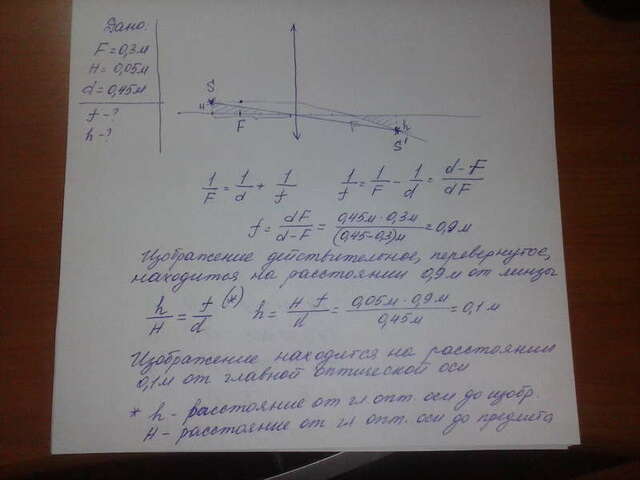 Дано:
F = 0,3м
H = 0,05м
d = 0,45м
f - ?
h - ?
S
H
F
F
h
S'
1/F = 1/d + 1/f
1/f = 1/F - 1/d = d-F/dF
f = dF/d-F = 0,45м · 0,3м/(0,45-0,3)м = 0,9м
Изображение действительное, перевернутое,
находится на расстоянии 0,9м от линзы
h/H = f/d (*)
h = H·f/d = 0,05м · 0,9м/0,45м = 0,1м
Изображение находится на расстоянии
0,1м от главной оптической оси
* h - расстояние от гл опт. оси до изобр.
H - расстояние от гл опт. оси до предмета